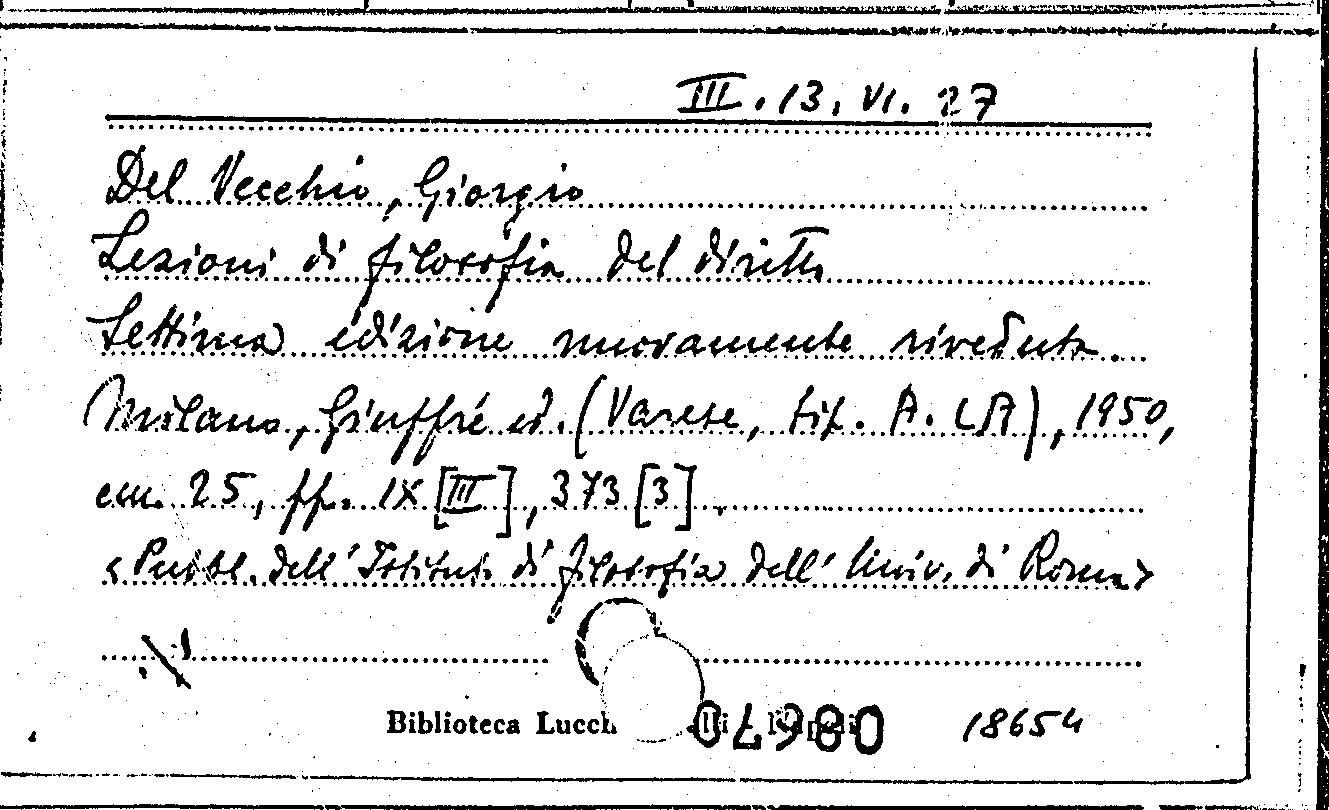 III. 13. VI. 27
Del Vecchio, Giorgio
Lezioni di filosofia del diritto
Settima edizione nuovamente riveduta.
Milano, Giuffré ed. (Varese, tip. A. LA), 1950,
cm. 25, pp. IX [III], 373 [3].
«Pubbl. dell'Istituto di filosofia dell'Univ. di Roma»
Biblioteca Lucch 18654